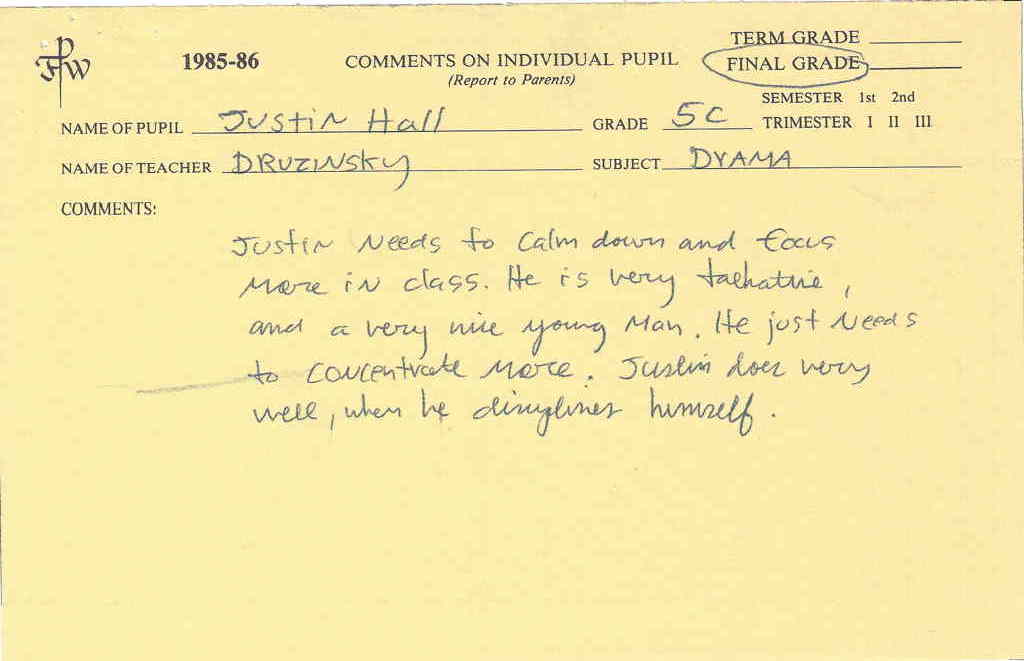 FPW
1985-86 COMMENTS ON INDIVIDUAL PUPIL TERM GRADE
(Report to Parents) FINAL GRADE
SEMESTER 1st 2nd
NAME OF PUPIL Justin Hall GRADE 5C TRIMESTER I II III
NAME OF TEACHER DRUZINSKY SUBJECT DRAMA
COMMENTS:
Justin Needs to Calm down and focus
More in class. He is very talkative,
and a very nice young Man. He just Needs
to concentrate More. Justin does very
well, when he disciplines himself.